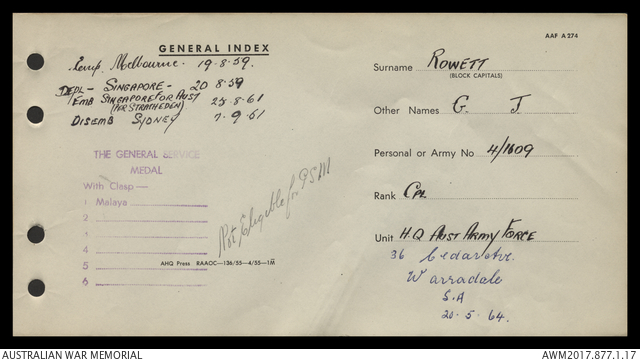 GENERAL INDEX
AAF A274
Melbourne. 19.8.59.
DEPL- SINGAPORE - 20 8.59
EMB SINGAPORE FOR AUST 25.8.61
(PER STRATHEDEN)
DISEMB SYDNEY 9.61
THE GENERAL SERVICE
MEDAL
With Clasp—
1 Malaya
2
3
4
5
6
Not Eligible for PSM
AHQ Press RAAOC—136/55—4/55—1M
Surname ROWETT
(BLOCK CAPITALS)
Other Names G. J.
Personal or Army No 4/1609
Rank CPL
Unit H.Q AUST ARMY FORCE
36 Cedar Ave.
Warradale
S.A
20.5.64.
AUSTRALIAN WAR MEMORIAL
AWM2017.877.1.17